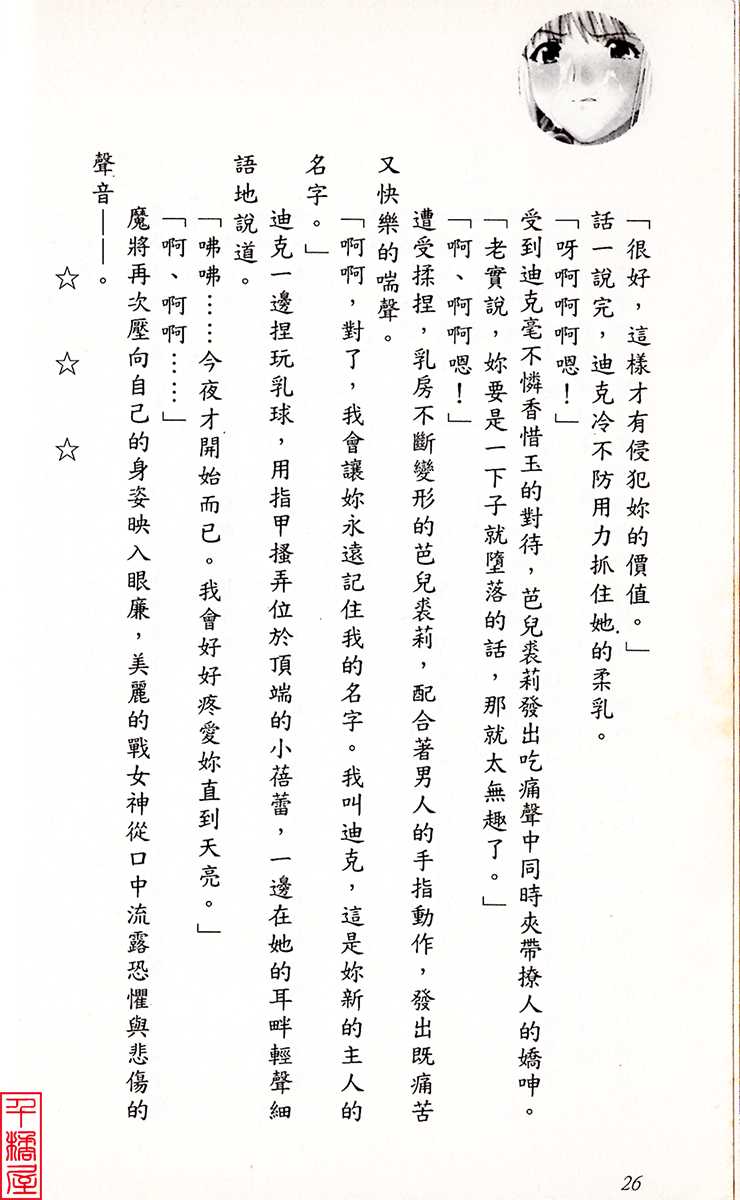 「很好，這樣才有侵犯妳的價值。」
話一說完，迪克冷不防用力抓住她的柔乳。
「呀啊啊啊嗯！」
受到迪克毫不憐香惜玉的對待，芭兒裘莉發出吃痛聲中同時夾帶撩人的嬌呻。
「老實說，妳要是一下子就墮落的話，那就太無趣了。」
「啊、啊啊嗯！」
遭受揉捏，乳房不斷變形的芭兒裘莉，配合著男人的手指動作，發出既痛苦
又快樂的喘聲。
「啊啊，對了，我會讓妳永遠記住我的名字。我叫迪克，這是妳新的主人的
名字。」
迪克一邊捏玩乳球，用指甲搔弄位於頂端的小蓓蕾，一邊在她的耳畔輕聲細
語地說道。
「咈咈……今夜才開始而已。我會好好疼愛妳直到天亮。」
「啊、啊啊……」
魔將再次壓向自己的身姿映入眼廉，美麗的戰女神從口中流露恐懼與悲傷的
聲音——。
☆ ☆ ☆
26